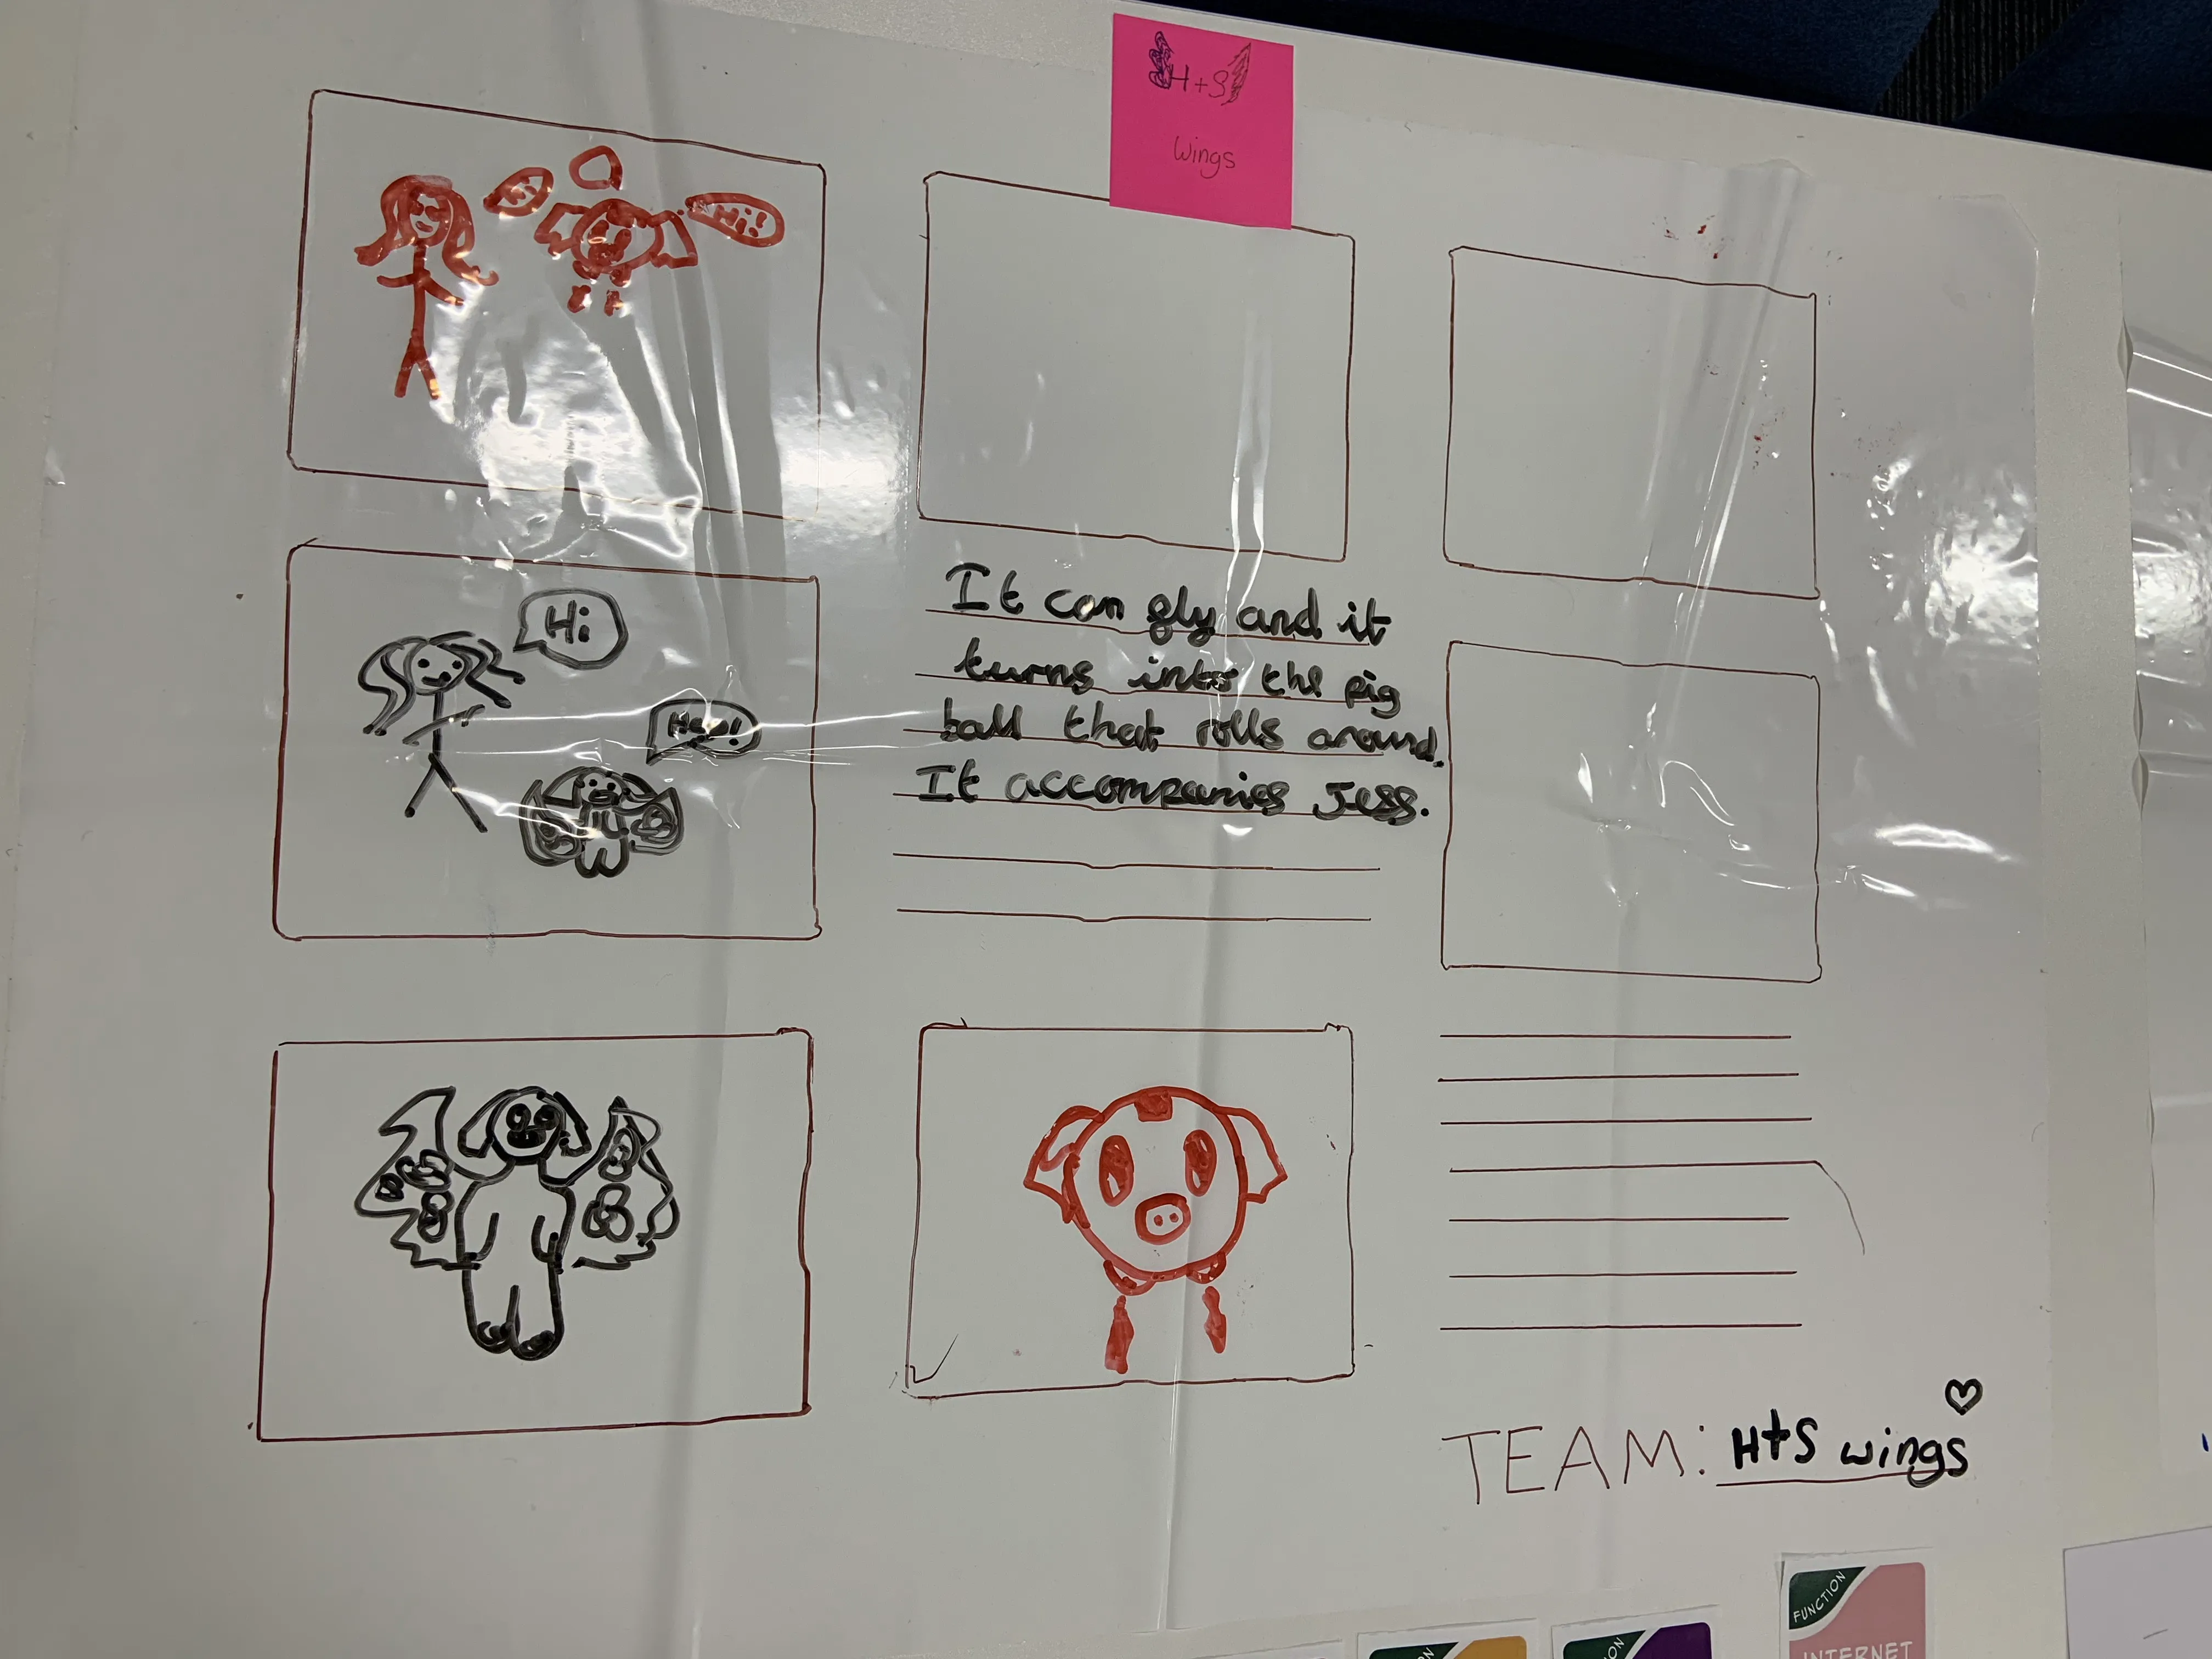 H+S
Wings
Hi!
Hi
It can gly and it
turns into the pig
ball that rolls around.
It accompanies Jess.
TEAM: H+S wings
FUNCTION
INTERNET